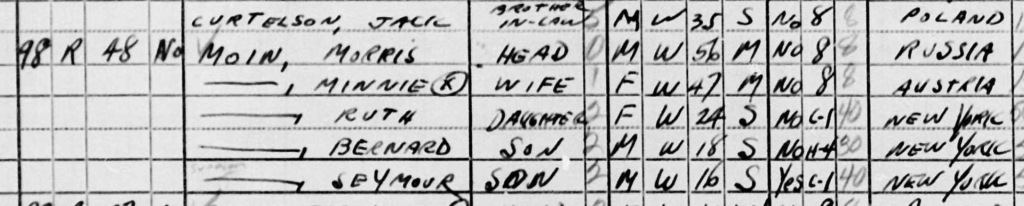 CURTELSON, JACK BROTHER IN-LAW 5 M W 35 S No 8 8 POLAND
98 R 48 No MOIN, MORRIS HEAD 0 M W 56 M No 8 8 RUSSIA
——, MINNIE Ⓧ WIFE 1 F W 47 M No 8 8 AUSTRIA
——, RUTH DAUGHTER 2 F W 24 S No C-1 40 NEW YORK
——, BERNARD SON 2 M W 18 S No H-4 30 NEW YORK
——, SEYMOUR SON 2 M W 16 S Yes C-1 40 NEW YORK